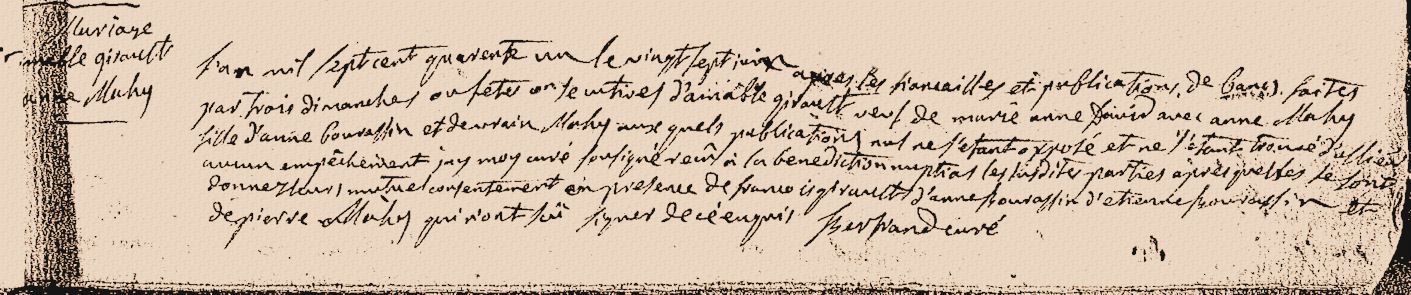 Mariage
amable girault
anne Mahy
L'an mil sept cent quarente un le vingt sept juin apres les fiancailles et publication, de bancs faites
par trois dimanches ou fetes consecutives d'aimable girault veuf de marie anne David avec anne Mahy
fille d'anne bourassin et de urain Mahy aux quels publications nul ne s'etant opposé et ne s'etant trouvé d'allieurs
aucun empêchement jay moy curé sousigné receu a la benediction nuptias les susdites parties après quelles se sont
donnez leurs mutuel consentement en presence de francois girault d'anne bourassin d'etienne bourassin et
de pierre Mahy qui n'ont sû signer de ce enquis Bertrand curé